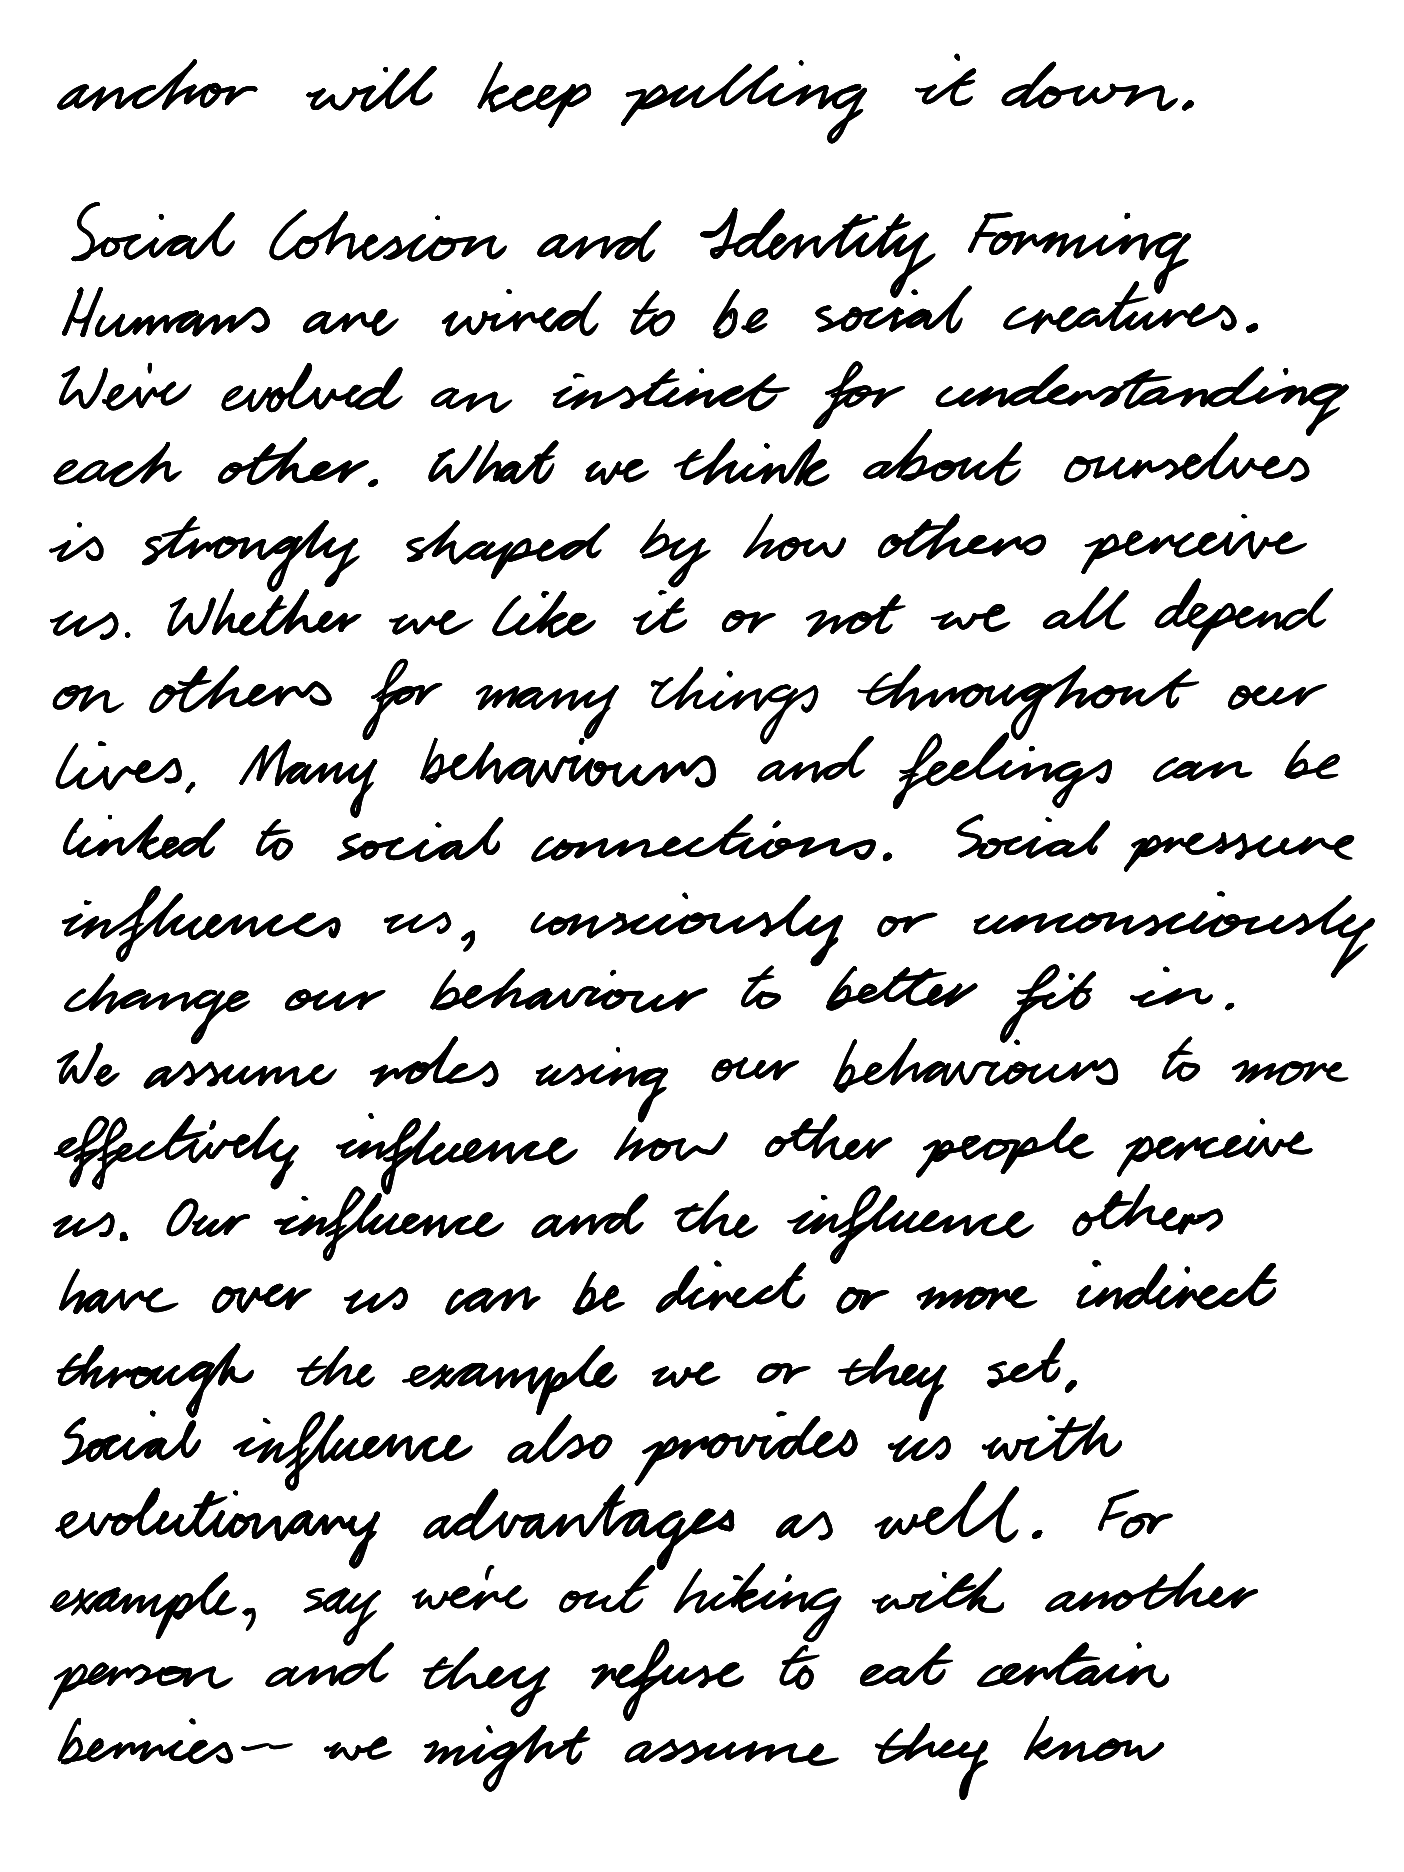 anchor will keep pulling it down.
Social Cohesion and Identity Forming
Humans are wired to be social creatures.
We've evolved an instinct for understanding
each other. What we think about ourselves
is strongly shaped by how others perceive
us. Whether we like it or not we all depend
on others for many things throughout our
lives. Many behaviours and feelings can be
linked to social connections. Social pressure
influences us, consciously or unconsciously
change our behaviour to better fit in.
We assume roles using our behaviours to more
effectively influence how other people perceive
us. Our influence and the influence others
have over us can be direct or more indirect
through the example we or they set.
Social influence also provides us with
evolutionary advantages as well. For
example, say we're out hiking with another
person and they refuse to eat certain
berries— we might assume they know